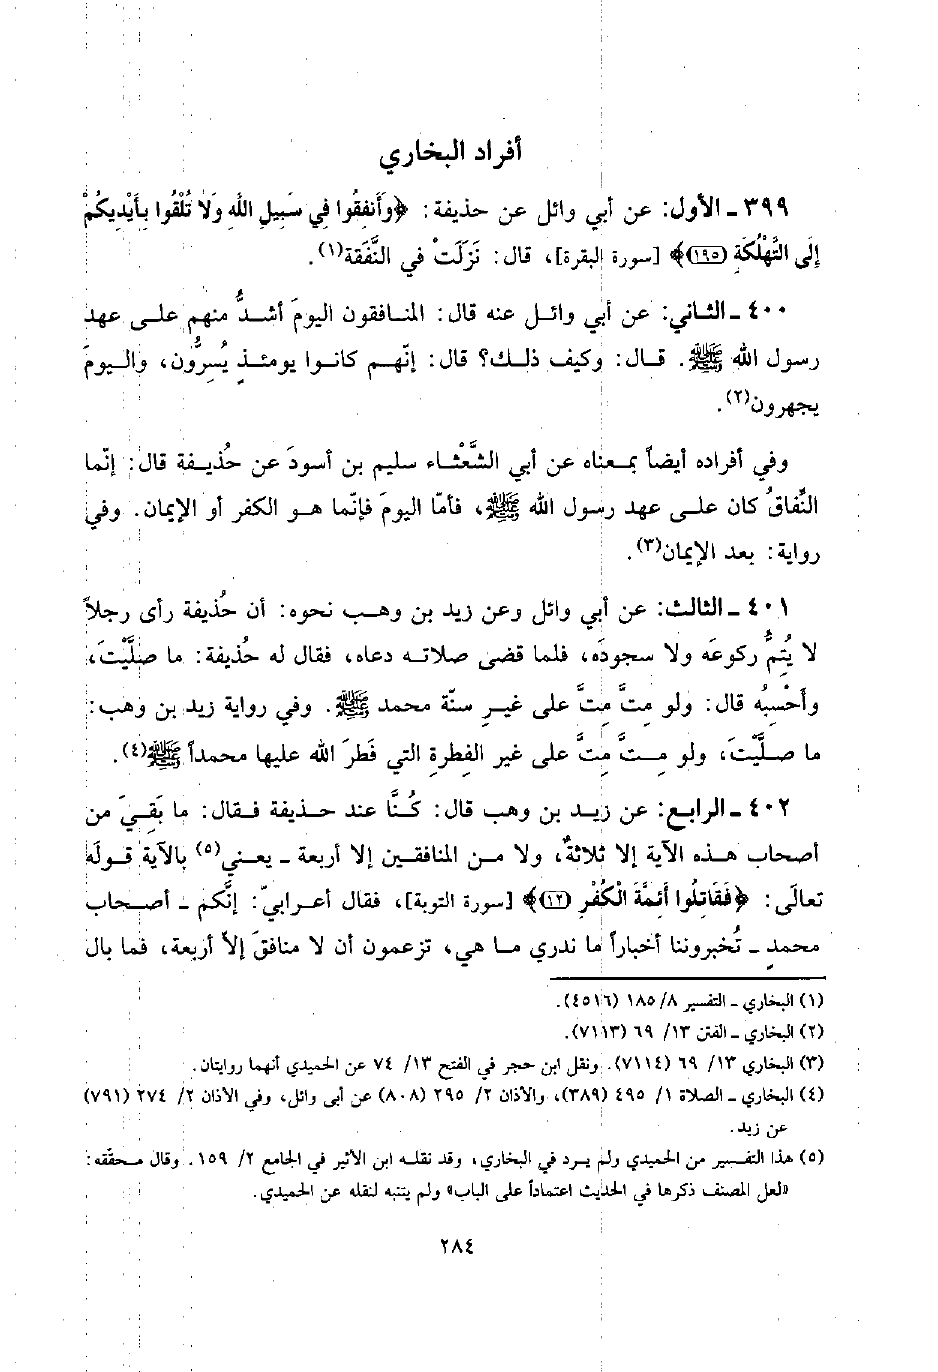 أفراد البخاري
٣٩٩ ـ الأول: عن أبي وائل عن حذيفة: ﴿وَأَنفِقُوا فِي سَبِيلِ اللَّهِ وَلَا تُلْقُوا بِأَيْدِيكُمْ
إِلَى التَّهْلُكَةِ (١٩٥)﴾ [سورة البقرة]، قال: نَزَلَتْ في النَّفَقة(١).
٤٠٠ ـ الثاني: عن أبي وائل عنه قال: المنافقون اليومَ أشدُّ منهم على عهد
رسول الله ﷺ. قال: وكيف ذلك؟ قال: إنّهم كانوا يومئذٍ يُسرُّون، واليومَ
يجهرون(٢).
وفي أفراده أيضاً بمعناه عن أبي الشَّعْثاء سليم بن أسودَ عن حُذيفة قال: إنّما
النِّفاقُ كان على عهد رسول الله ﷺ، فأمّا اليومَ فإنّما هو الكفر أو الإيمان. وفي
رواية: بعد الإيمان(٣).
٤٠١ ـ الثالث: عن أبي وائل وعن زيد بن وهب نحوه: أن حُذيفة رأى رجلاً
لا يُتِمُّ ركوعَه ولا سجودَه، فلما قضى صلاته دعاه، فقال له حُذيفة: ما صلَّيْتَ،
وأحْسِبُه قال: ولو مِتَّ مِتَّ على غيرِ سنّة محمد ﷺ. وفي رواية زيد بن وهب:
ما صلَّيْتَ، ولو مِتَّ مِتَّ على غير الفِطرةِ التي فَطَرَ الله عليها محمداً ﷺ(٤).
٤٠٢ ـ الرابع: عن زيد بن وهب قال: كُنَّا عند حذيفة فقال: ما بَقِيَ من
أصحاب هذه الآية إلا ثلاثةٌ، ولا من المنافقين إلا أربعة ـ يعني(٥) بالآية قولَه
تعالَى: ﴿فَقَاتِلُوا أَئِمَّةَ الْكُفْرِ (١٢)﴾ [سورة التوبة]، فقال أعرابيّ: إنَّكم ـ أصحاب
محمدٍ ـ تُخبروننا أخباراً ما ندري ما هي، تزعمون أن لا منافقَ إلاّ أربعة، فما بال
(١) البخاري ـ التفسير ٨/ ١٨٥ (٤٥١٦).
(٢) البخاري ـ الفتن ١٣/ ٦٩ (٧١١٣).
(٣) البخاري ١٣/ ٦٩ (٧١١٤). ونقل ابن حجر في الفتح ١٣/ ٧٤ عن الحميدي أنهما روايتان.
(٤) البخاري ـ الصلاة ١/ ٤٩٥ (٣٨٩)، والأذان ٢/ ٢٩٥ (٨٠٨) عن أبى وائل، وفي الأذان ٢/ ٢٧٤ (٧٩١)
عن زيد.
(٥) هذا التفسير من الحميدي ولم يرد في البخاري، وقد نقله ابن الأثير في الجامع ٢/ ١٥٩. وقال محققه:
«لعل المصنف ذكرها في الحديث اعتماداً على الباب» ولم يتنبه لنقله عن الحميدي.
٢٨٤